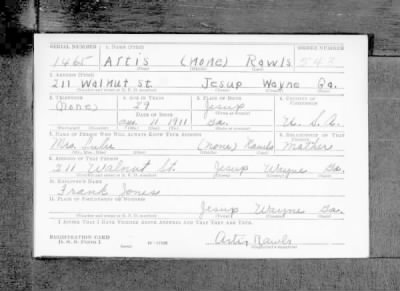 SERIAL NUMBER 1. NAME (Print) ORDER NUMBER
1465 Artis (none) Rawls 543
(First) (Middle) (Last)
2. ADDRESS (Print)
211 Walnut St. Jesup Wayne Ga.
3. TELEPHONE 4. AGE IN YEARS 5. PLACE OF BIRTH 6. COUNTRY OF CITIZENSHIP
(none) 29 Jesup
DATE OF BIRTH
11 1911 Ga. U. S. A.
7. NAME OF PERSON WHO WILL ALWAYS KNOW YOUR ADDRESS 8. RELATIONSHIP OF THAT PERSON
Mrs. (none) Rawls Mother
9. ADDRESS OF THAT PERSON
211 Walnut St. Jesup Wayne Ga.
10. EMPLOYER'S NAME
Frank Jones
11. PLACE OF EMPLOYMENT OR BUSINESS
Jesup Wayne Ga.
I AFFIRM THAT I HAVE VERIFIED ABOVE ANSWERS AND THAT THEY ARE TRUE.
REGISTRATION CARD
D. S. S. FORM 1
Artis Rawls